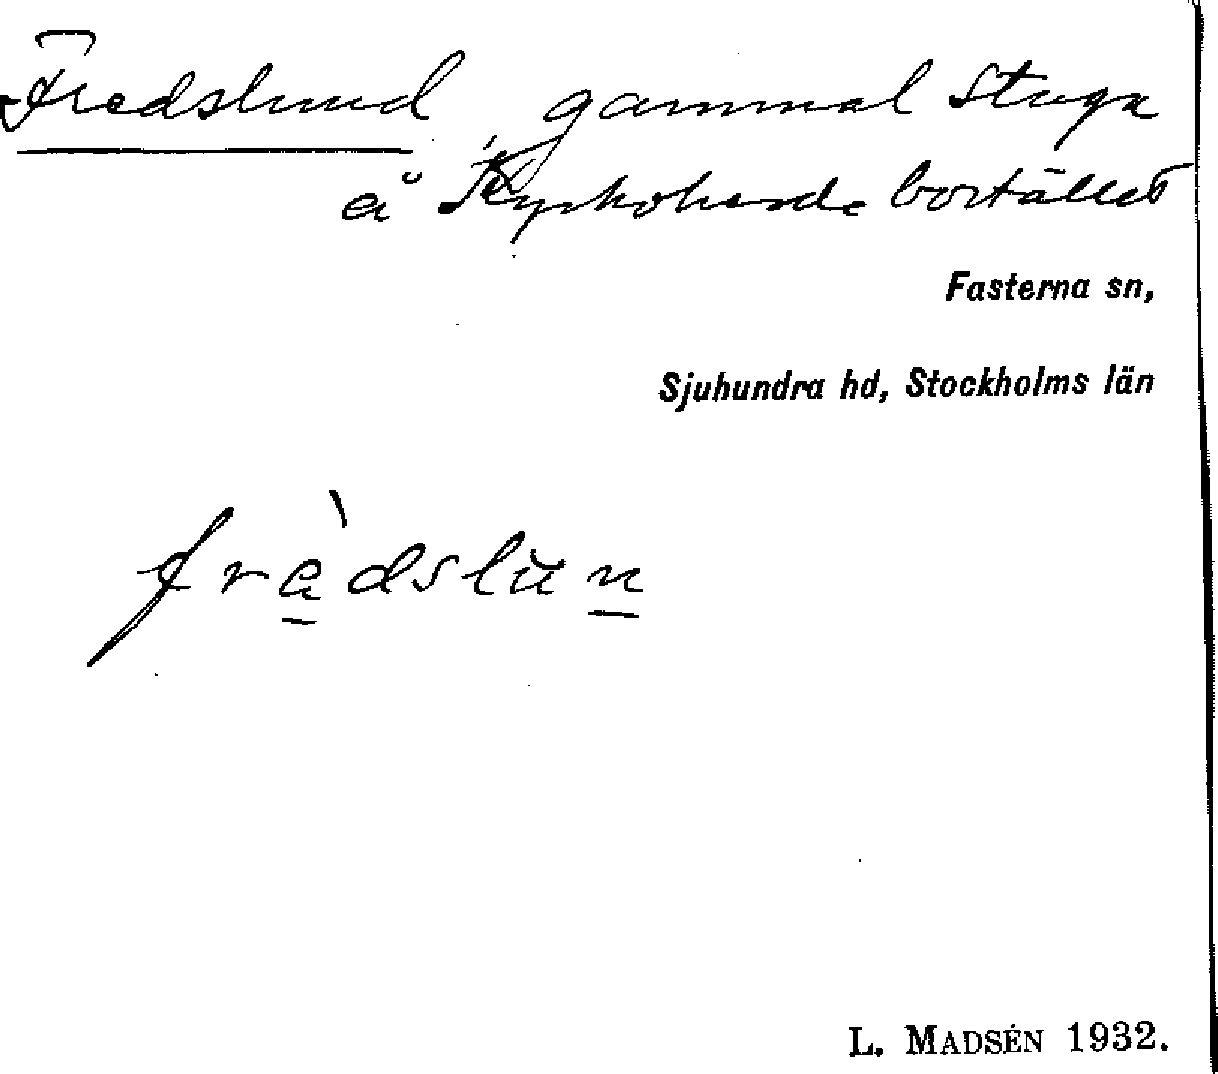 Fredslund, gammal stuga
å Kyrkoherde bostället
Fasterna sn,
Sjuhundra hd, Stockholms län
frèdslun
L. MADSÉN 1932.